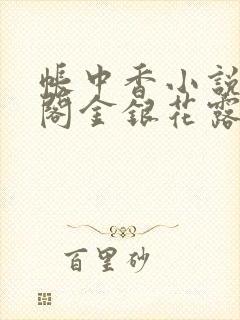 帳中香小說
閣金銀花露
百里砂